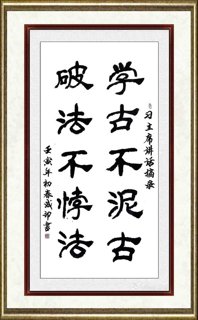 习主席讲话摘录
学古不泥古
破法不悖法
壬寅年初春成印书